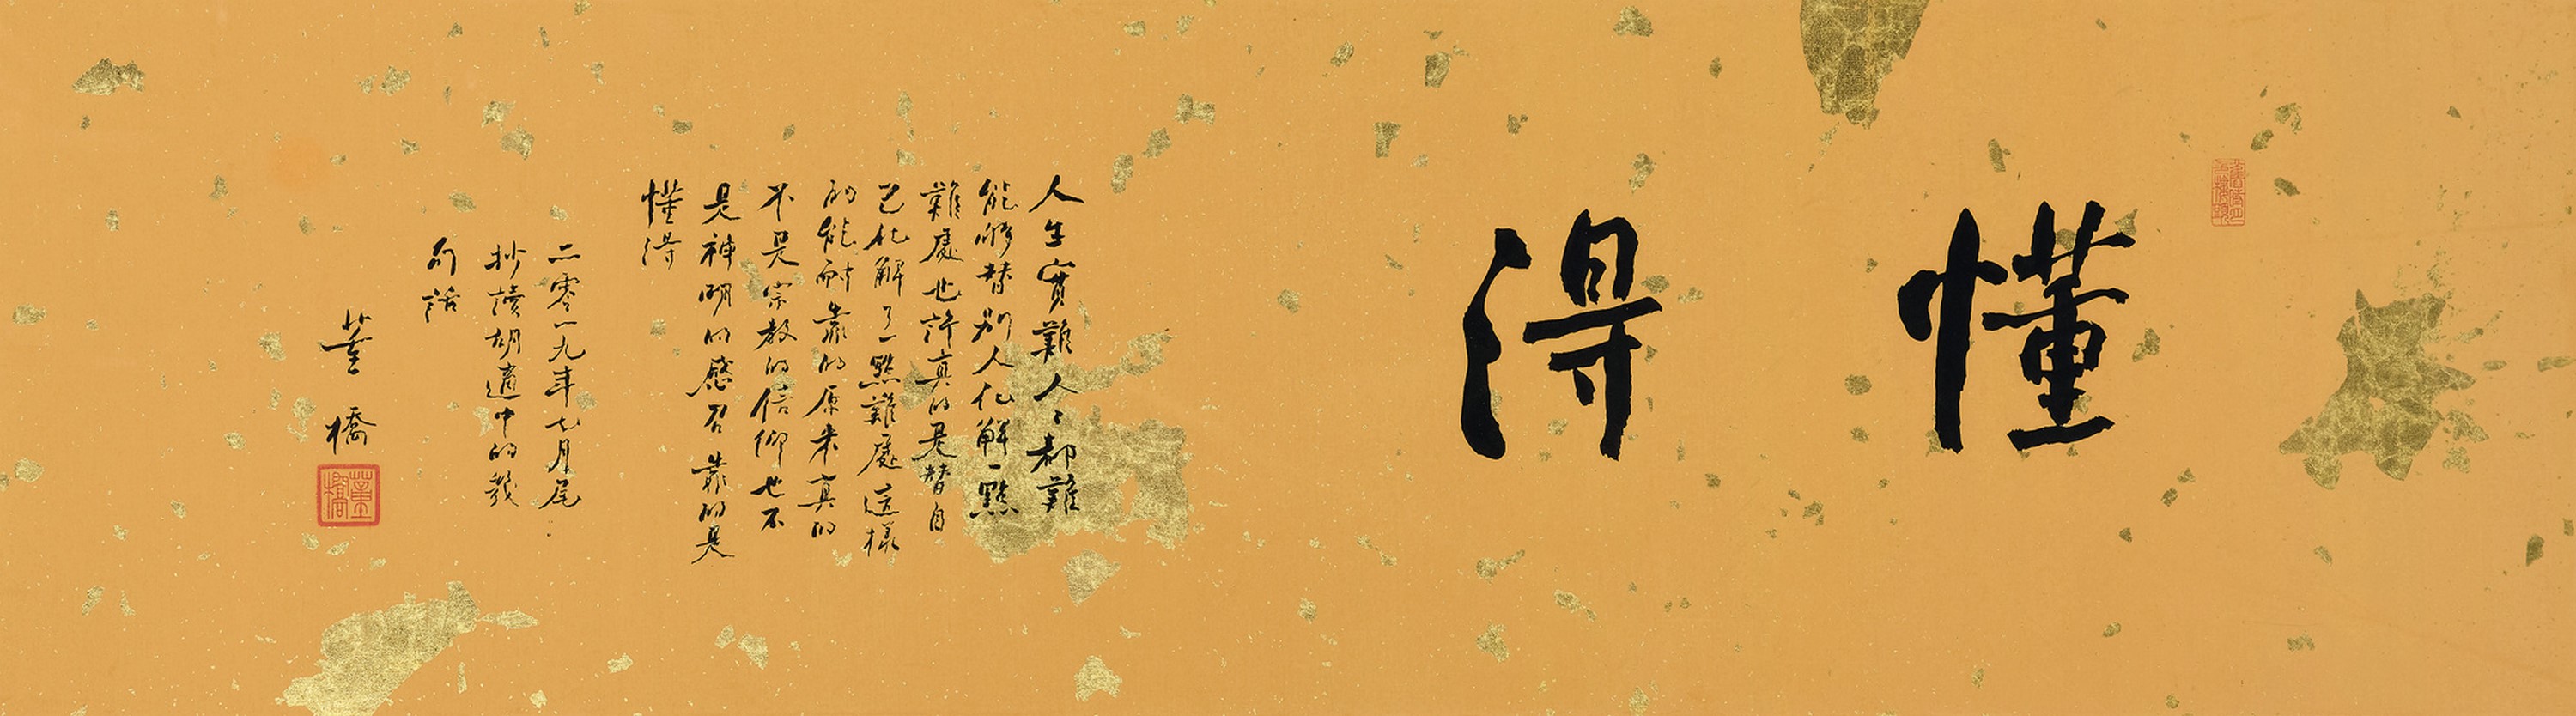 懂得
人生實難人々都難
能夠替別人化解一點
難處也許真的是替自
己化解了一點難處這樣
的能耐靠的原來真的
不是宗教的信仰也不
是神明的感召靠的是
懂得
二零一九年七月尾
抄讀胡適中的幾
句話
董橋
董橋